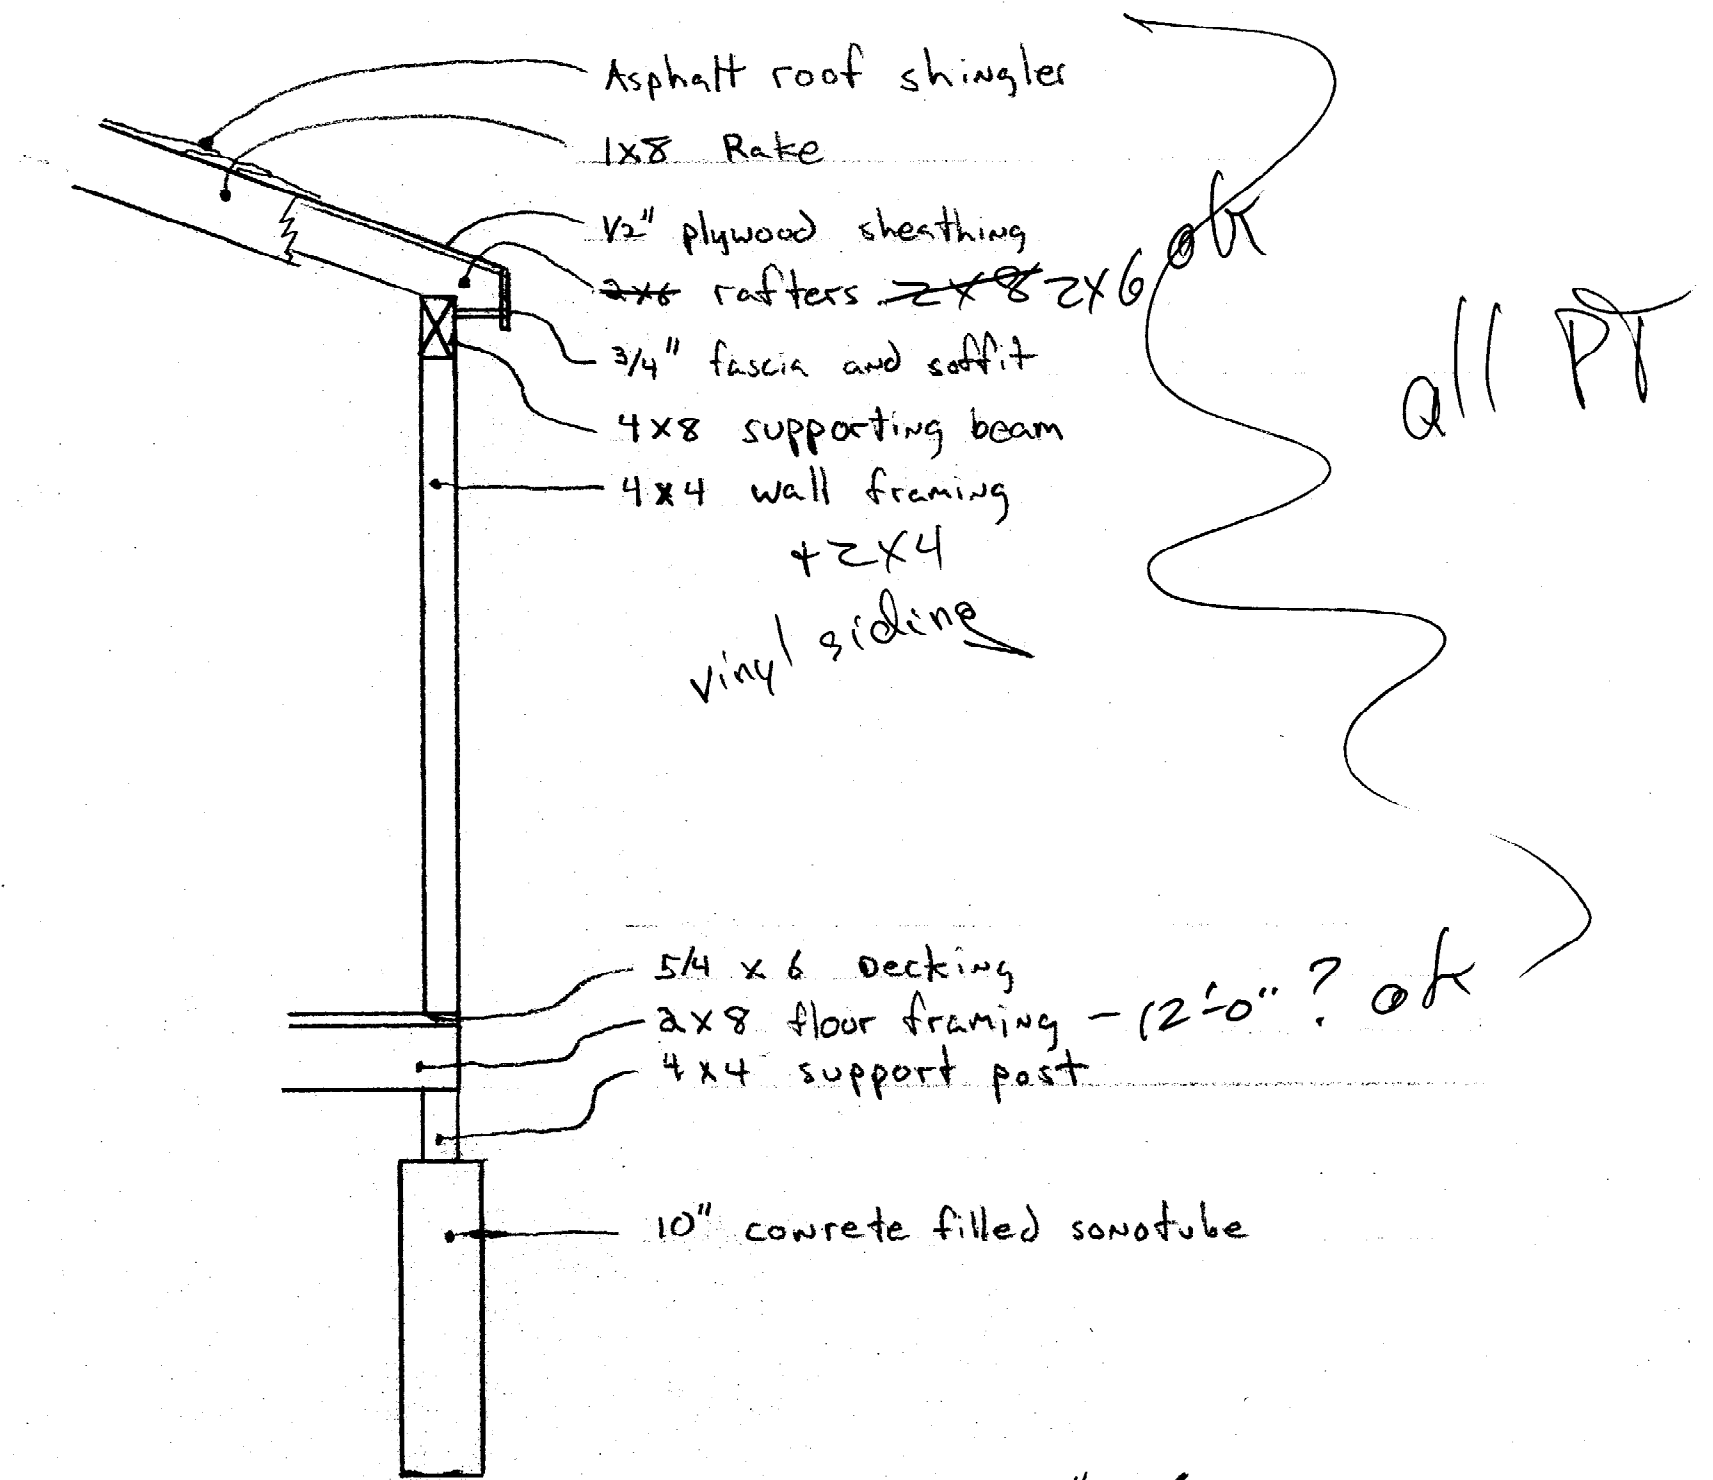 Asphalt roof shingles
1x8 Rake
1/2" plywood sheathing
2x6 rafters 2x8 2x6 ok
3/4" fascia and soffit
4x8 supporting beam
4x4 wall framing
+ 2x4
vinyl siding
all PT
5/4 x 6 Decking
2x8 floor framing - 12'-0" ? ok
4x4 support post
10" conrete filled sonotube